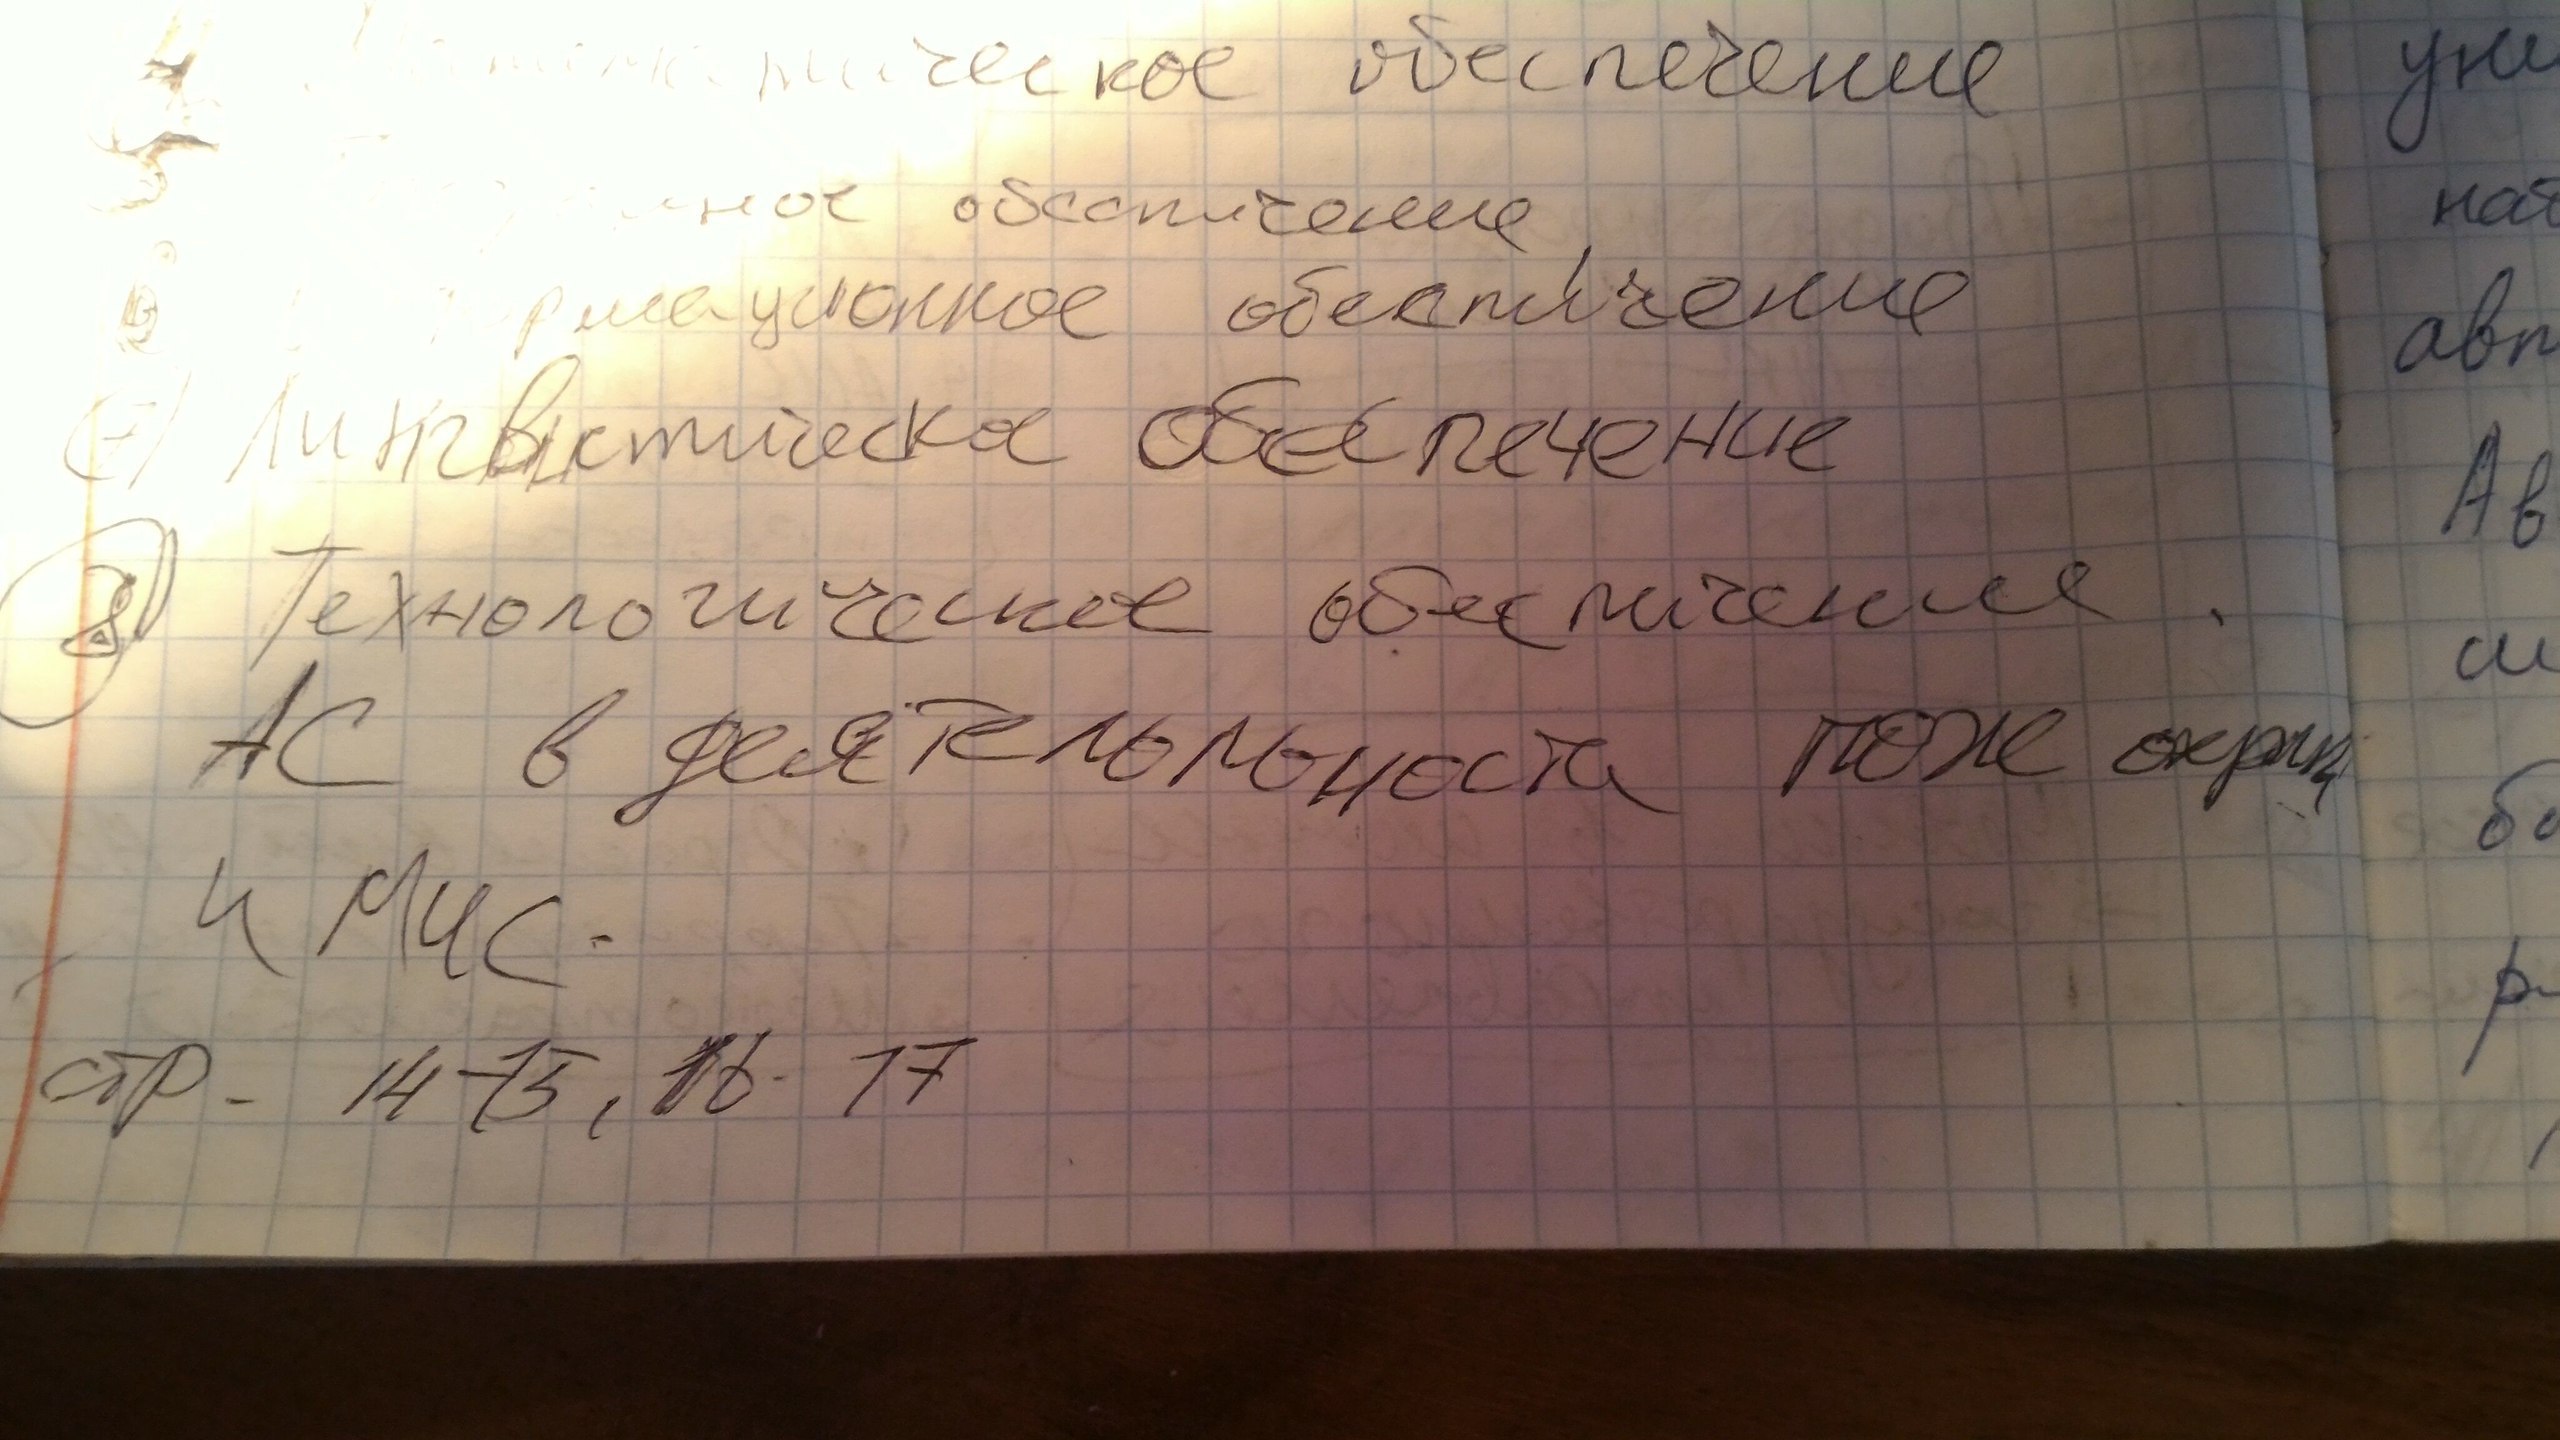 4 Математическое обеспечение
5 обеспечение
6 Информационное обеспечение
7) Лингвистическое обеспечение
8) Технологическое обеспечение.
АС в деятельности пож охраны
и МЧС.
стр. 14-15, 16-17
уни
наб
авт
Ав
ши
бо